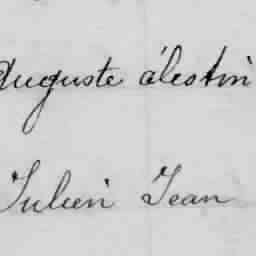 Auguste álestin
Julien Jean